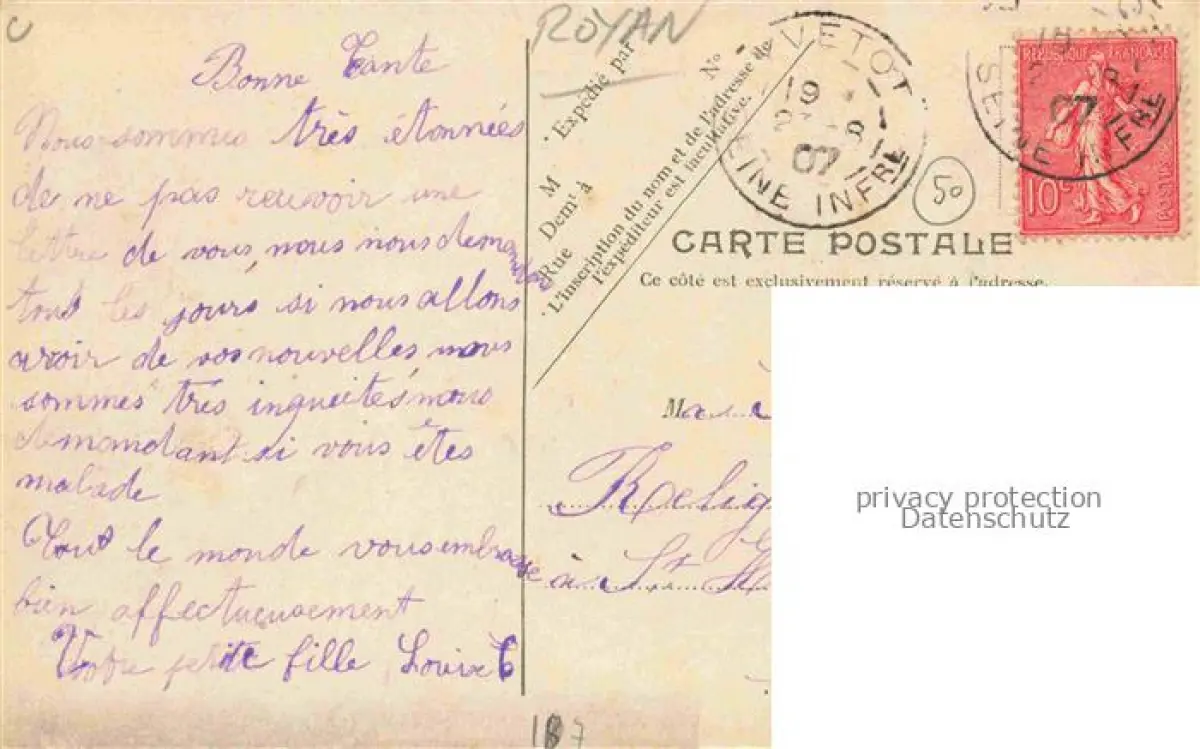 Bonne Tante
Nous sommes très étonnées
de ne pas reuvoir une
lettre de vous, nous nous demandons
tous les jours si nous allons
avoir de vos nouvelles, nous
sommes très inquietes nous
demandant si vous êtes
malade
Tout le monde vous embrasse
bien affectueusement
Votre petite fille, Louise C
ROYAN
Expédié par
M
Demt à
Rue
N°
L'inscription du nom et de l'adresse de
l'expéditeur est facultative.
YVETOT
19
07
SEINE INFRE
50
REPUBLIQUE FRANÇAISE
10c
POSTES
07
SEINE INFRE
CARTE POSTALE
Ce côté est exclusivement réservé à l'adresse.
M
à St
privacy protection
Datenschutz
187